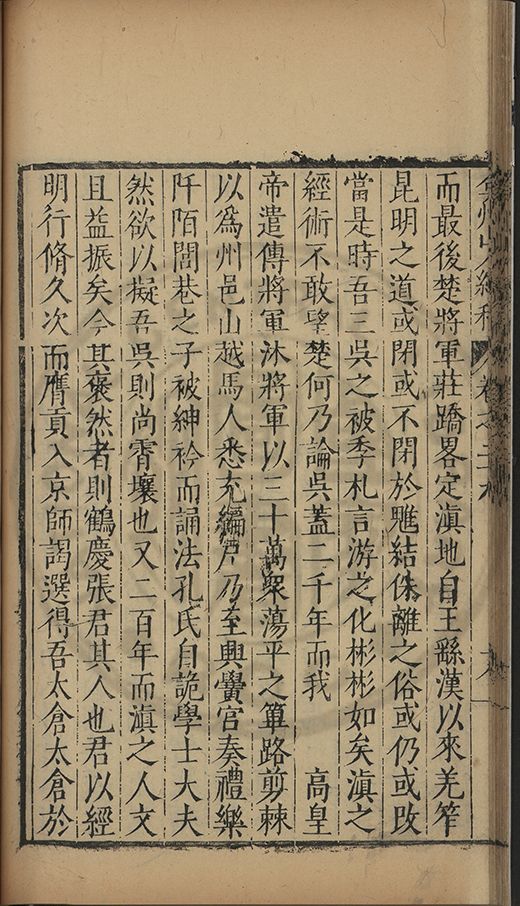 弇州山人續稿 卷之三
而最後楚將軍莊蹻畧定滇地自王繇漢以來羌筰
昆明之道或閉或不閉於魋結侏離之俗或仍或改
當是時吾三吳之被季札言游之化彬彬如矣滇之
經術不敢望楚何乃論吳蓋二千年而我 高皇
帝遣傳將軍沐將軍以三十萬眾蕩平之篳路剪棘
以為州邑山越馬人悉充編戶乃至興黌宮奏禮樂
阡陌閭巷之子被紳衿而誦法孔氏自詭學士大夫
然欲以擬吾吳則尚霄壤也又二百年而滇之人文
且益振矣今其褒然者則鶴慶張君其人也君以經
明行脩久次而膺貢入京師謁選得吾太倉太倉於